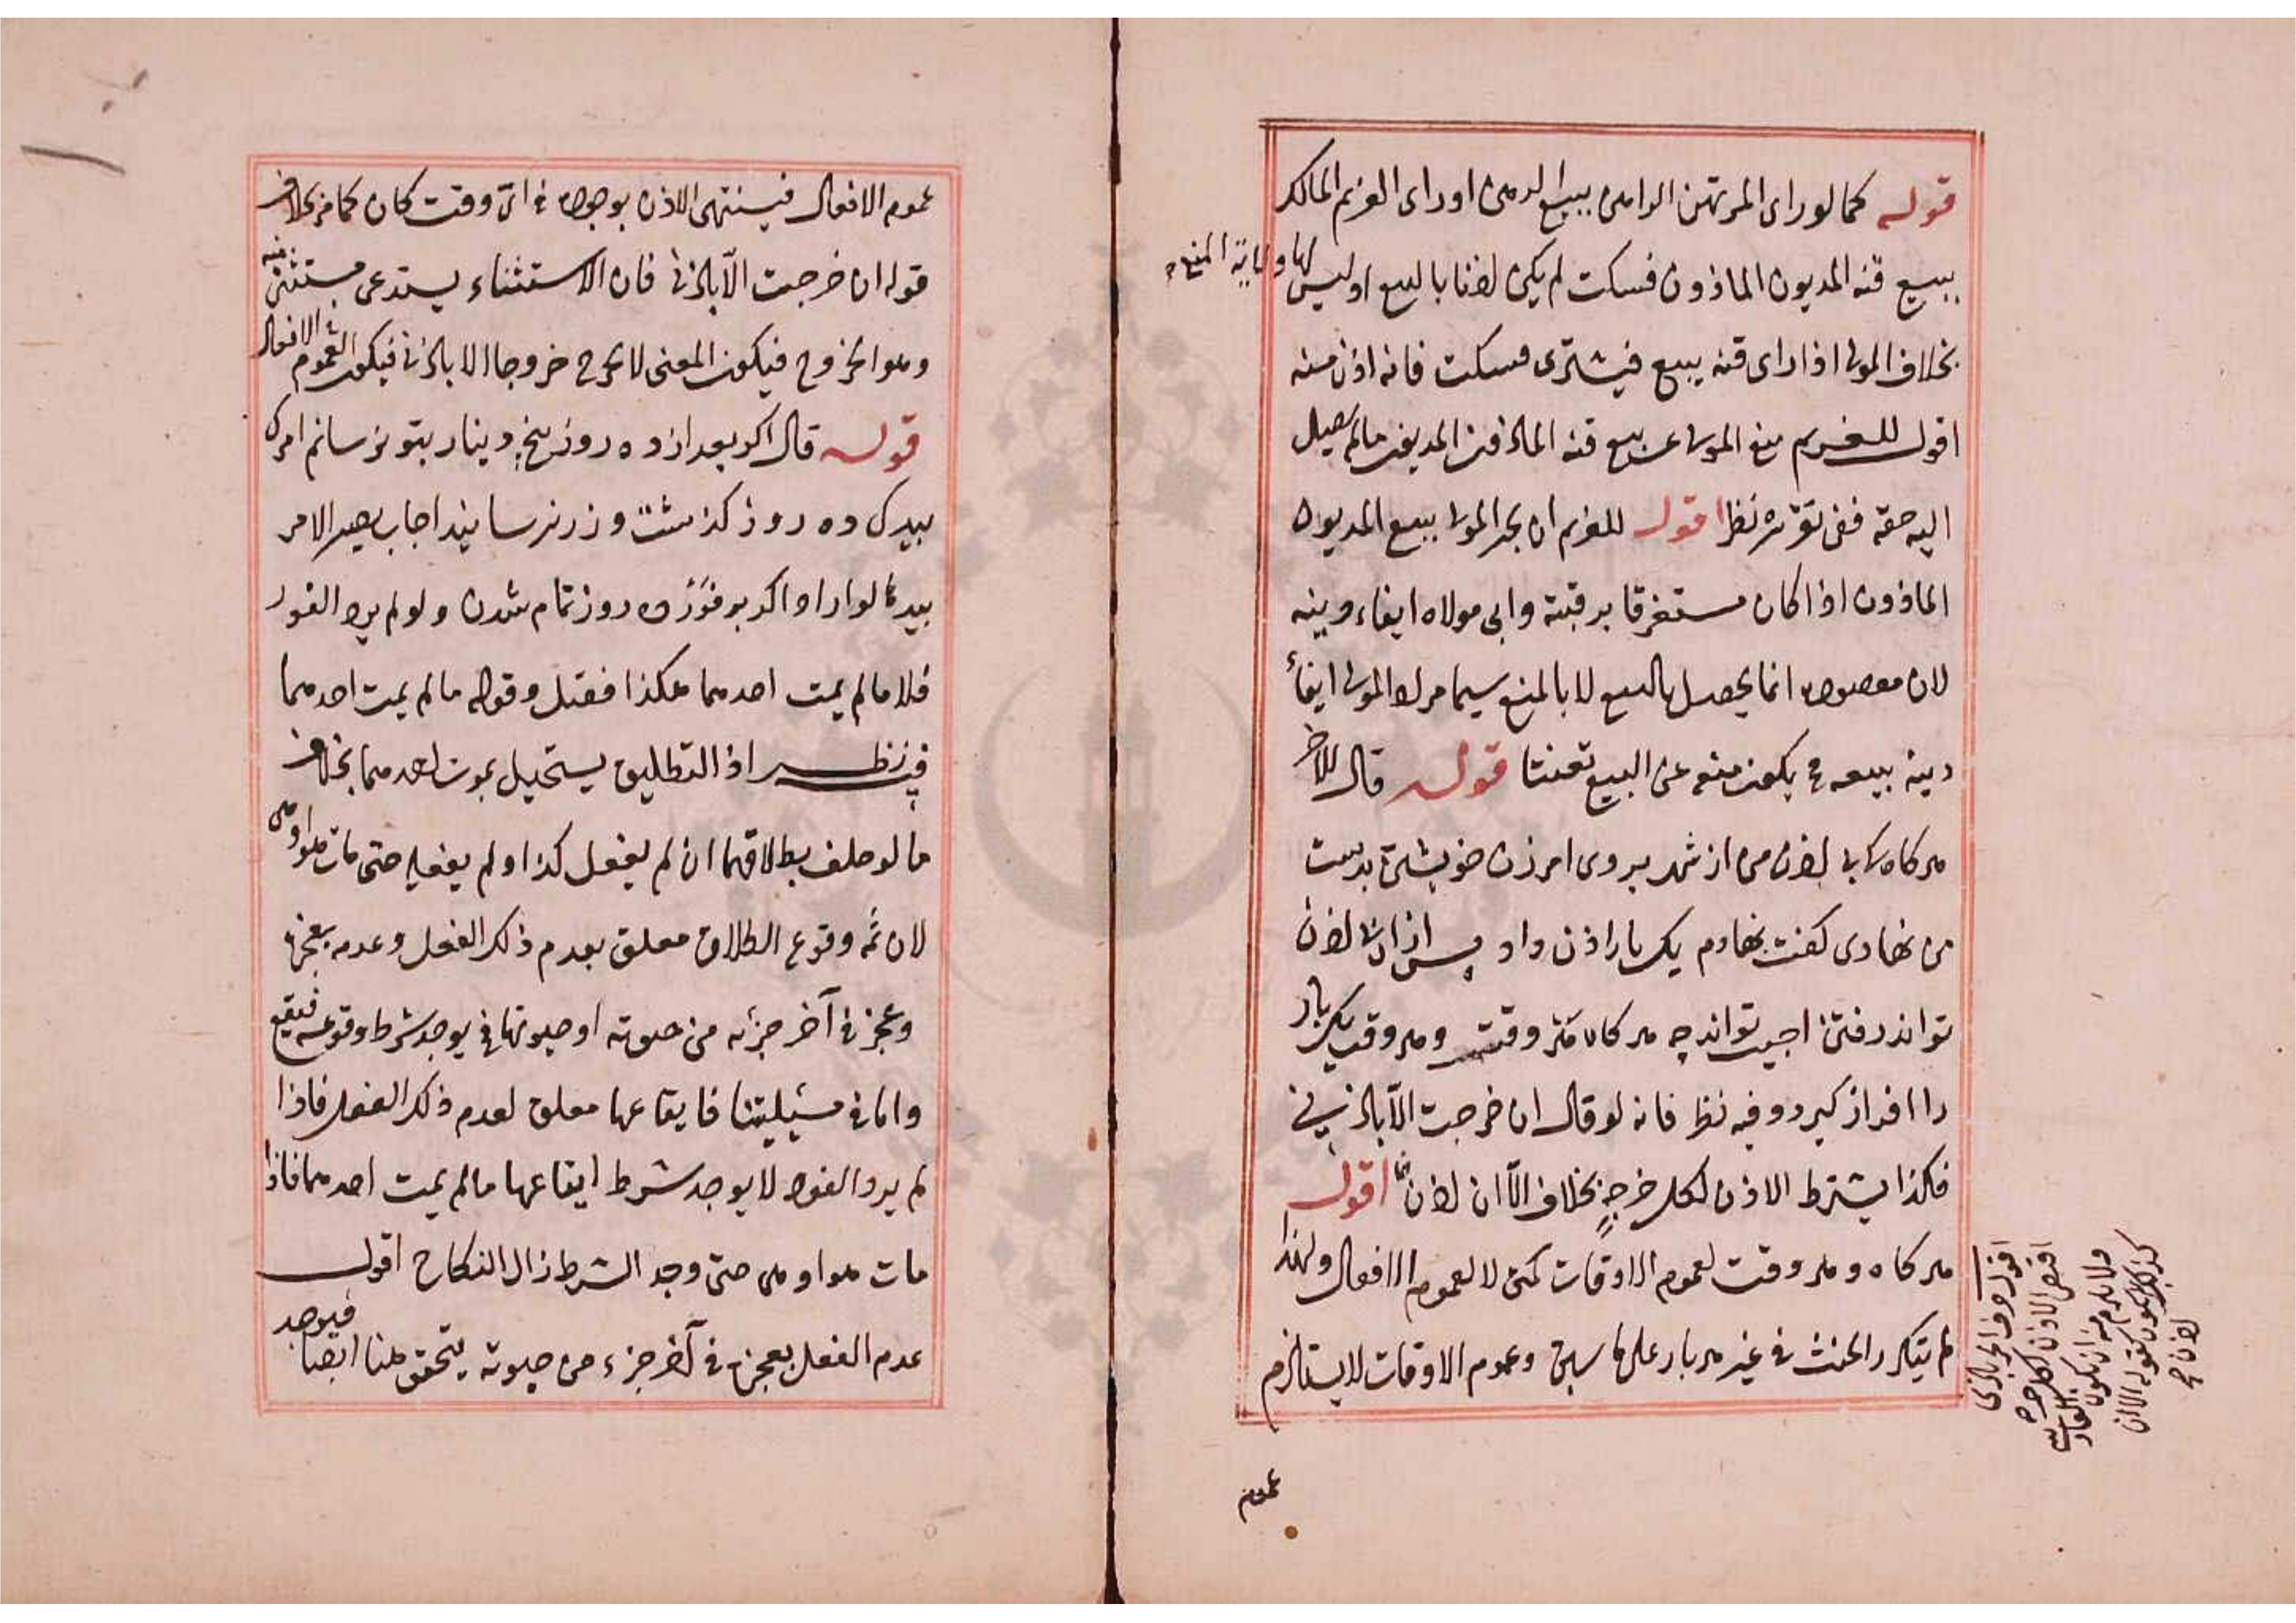 قوله كما لو رأى المرتهن الراهن يبيع الرهن او رأى الغريم المالك
يبيع قنه المديون الماذون فسكت لم يكن اذنا بالبيع اوليس لها ولاية المنع
بخلاف المولى اذا راى قنه يبيع فيشترى فسكت فانه اذن منه
اقول للغريم منع المولى عن بيع قنه الماذون المديون مالم يصل
اليه حقه ففى تقرره نظر اقول للغريم ان يجبر المولى ببيع المديون
الماذون اذا كان مستغرقا برقبته وابى مولاه ايفاء دينه
لان مقصوده انما يحصل بالبيع لا بالمنع سيما مر له المولى ايفاء
دينه ببيعه ح يكون منعه عن البيع تعنتا قوله قال للآخر
هركاه كه بى اذن من از شهر بروى امر زن خويشتن بدست
من نهادى كفت نهادم يك بار اذن داد پس ازان بى اذن
تواند رفتن اجيب تواند چه هركاه متى وقت وهر وقت يك بار
را افراز كيرد وفيه نظر فانه لو قال ان خرجت الا باذنى
فكذا يشترط الاذن لكل خرجة بخلاف الا ان اذن اقول
هركاه وهر وقت لعموم الاوقات كمتى لا لعموم الافعال ولهذا
لم يتكرر الحنث فى غير هربار على ما سبق وعموم الاوقات لا يستلزم
عموم
اقول حرف الجر باذنى
اقتضى الاذن لكل خرجة
فلا يلزم منه ان يكون
كذلك يكون كقوله الا ان
اذن صح
عموم الافعال فينتهى الاذن بوجوده فى اى وقت كان كما مر بخلاف
قوله ان خرجت الا باذنى فان الاستثناء يستدعى مستثنى منه
وهو الخروج فيكون المعنى لا تخرج خروجا الا باذنى فيكون لعموم الافعال
قوله قال اكر بعد از ده روز پنج دينار بتو نرسانم امرك
بيدك ده روز كذشت وزر نرسانيد اجاب يصير الامر
بيدها لو اراد اكر بر فور ده روز تمام شدن ولو لم يرد الفور
فلا مالم يمت احدهما هكذا فقيل وقوله مالم يمت احدهما
فيه نظر اذ التطليق يستحيل بموت احدهما بخلاف
ما لو حلف بطلاقها ان لم يفعل كذا ولم يفعله حتى مات هو او هى
لان ثمه وقوع الطلاق معلق بعدم ذلك الفعل وعدمه بعجزه
وعجزه فى آخر جزئه من حيوته او حيوتها فيوجد شرط وقوعه فيقع
واما فى مسئلتنا فايقاعها معلق لعدم ذلك الفعل فاذا
لم يرد الفور لا يوجد شرط ايقاعها مالم يمت احدهما فاذا
مات هو او هى حتى وجد الشرط زال النكاح اقول
عدم الفعل بعجزه فى آخر جزء من حيوته يتحقق هنا ايضا فيوجد